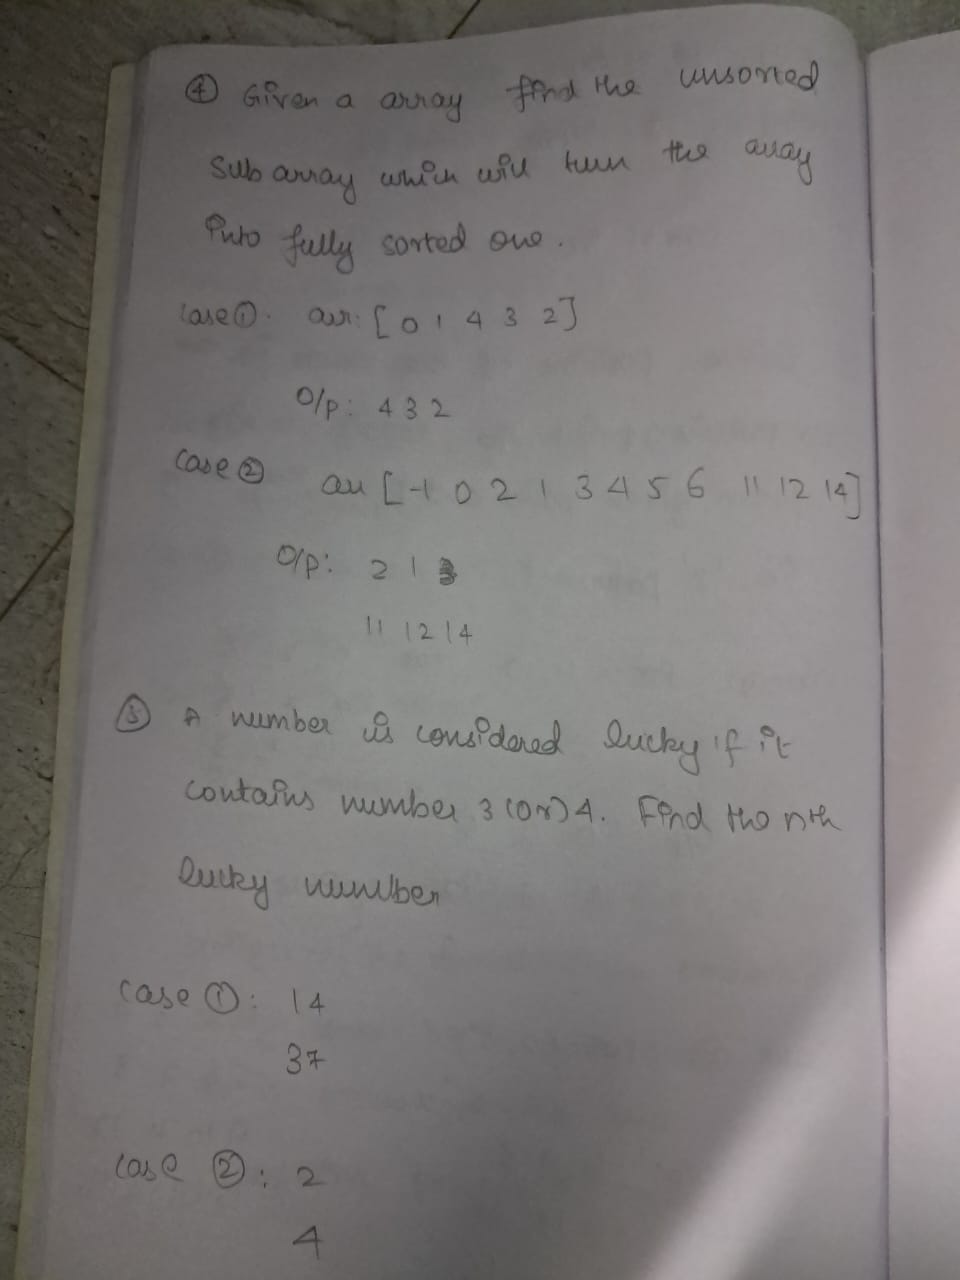 ④ Given a array find the unsorted
Sub array which will turn the array
into fully sorted one.
Case ①. arr: [0 1 4 3 2]
O/p: 4 3 2
Case ② arr [-1 0 2 1 3 4 5 6 11 12 14]
O/p: 2 1
11 12 14
⑤ A number is considered lucky if it
contains number 3 (or) 4. Find the nth
lucky number
case ①: 14
37
case ②: 2
4